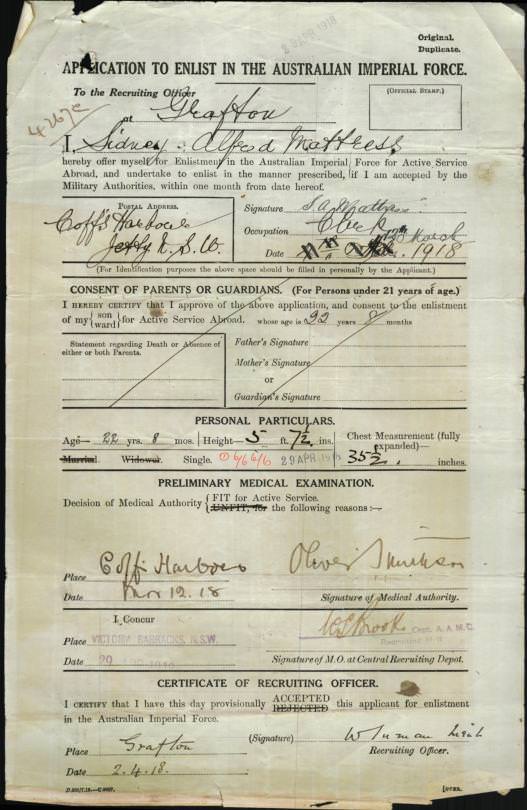 Original.
Duplicate.
2 APR 1918
APPLICATION TO ENLIST IN THE AUSTRALIAN IMPERIAL FORCE.
To the Recruiting Officer
at Grafton
(OFFICIAL STAMP.)
I, Sidney Alfred Mattress
hereby offer myself for Enlistment in the Australian Imperial Force for Active Service
Abroad, and undertake to enlist in the manner prescribed, if I am accepted by the
Military Authorities, within one month from date hereof.
POSTAL ADDRESS.
Coff's Harbour
Jetty N.S.W.
Signature S.A. Mattress
Occupation Clerk
Date 12th March 1918
(For Identification purposes the above space should be filled in personally by the Applicant.)
CONSENT OF PARENTS OR GUARDIANS. (For Persons under 21 years of age.)
I HEREBY CERTIFY that I approve of the above application, and consent to the enlistment
of my {son
ward} for Active Service Abroad. whose age is 22 years 8 months
Statement regarding Death or Absence of
either or both Parents.
Father's Signature
Mother's Signature
or
Guardian's Signature
PERSONAL PARTICULARS.
Age— 22 yrs. 8 mos. Height— 5 ft. 7½ ins.
Chest Measurement (fully
expanded)—
35½ inches.
Married Widower. Single. 29 APR 1918
PRELIMINARY MEDICAL EXAMINATION.
Decision of Medical Authority {FIT for Active Service.
UNFIT, for the following reasons :—
Place Coffs Harbour
Date Mar 12.18
Signature of Medical Authority.
I Concur
Place VICTORIA BARRACKS, N.S.W.
Date 29 APR 1918
Capt. A.A.M.C.
Recruiting M.O.
Signature of M.O. at Central Recruiting Depot.
CERTIFICATE OF RECRUITING OFFICER.
I CERTIFY that I have this day provisionally ACCEPTED
REJECTED this applicant for enlistment
in the Australian Imperial Force.
Place Grafton
(Signature)
Recruiting Officer.
Date 2.4.18.